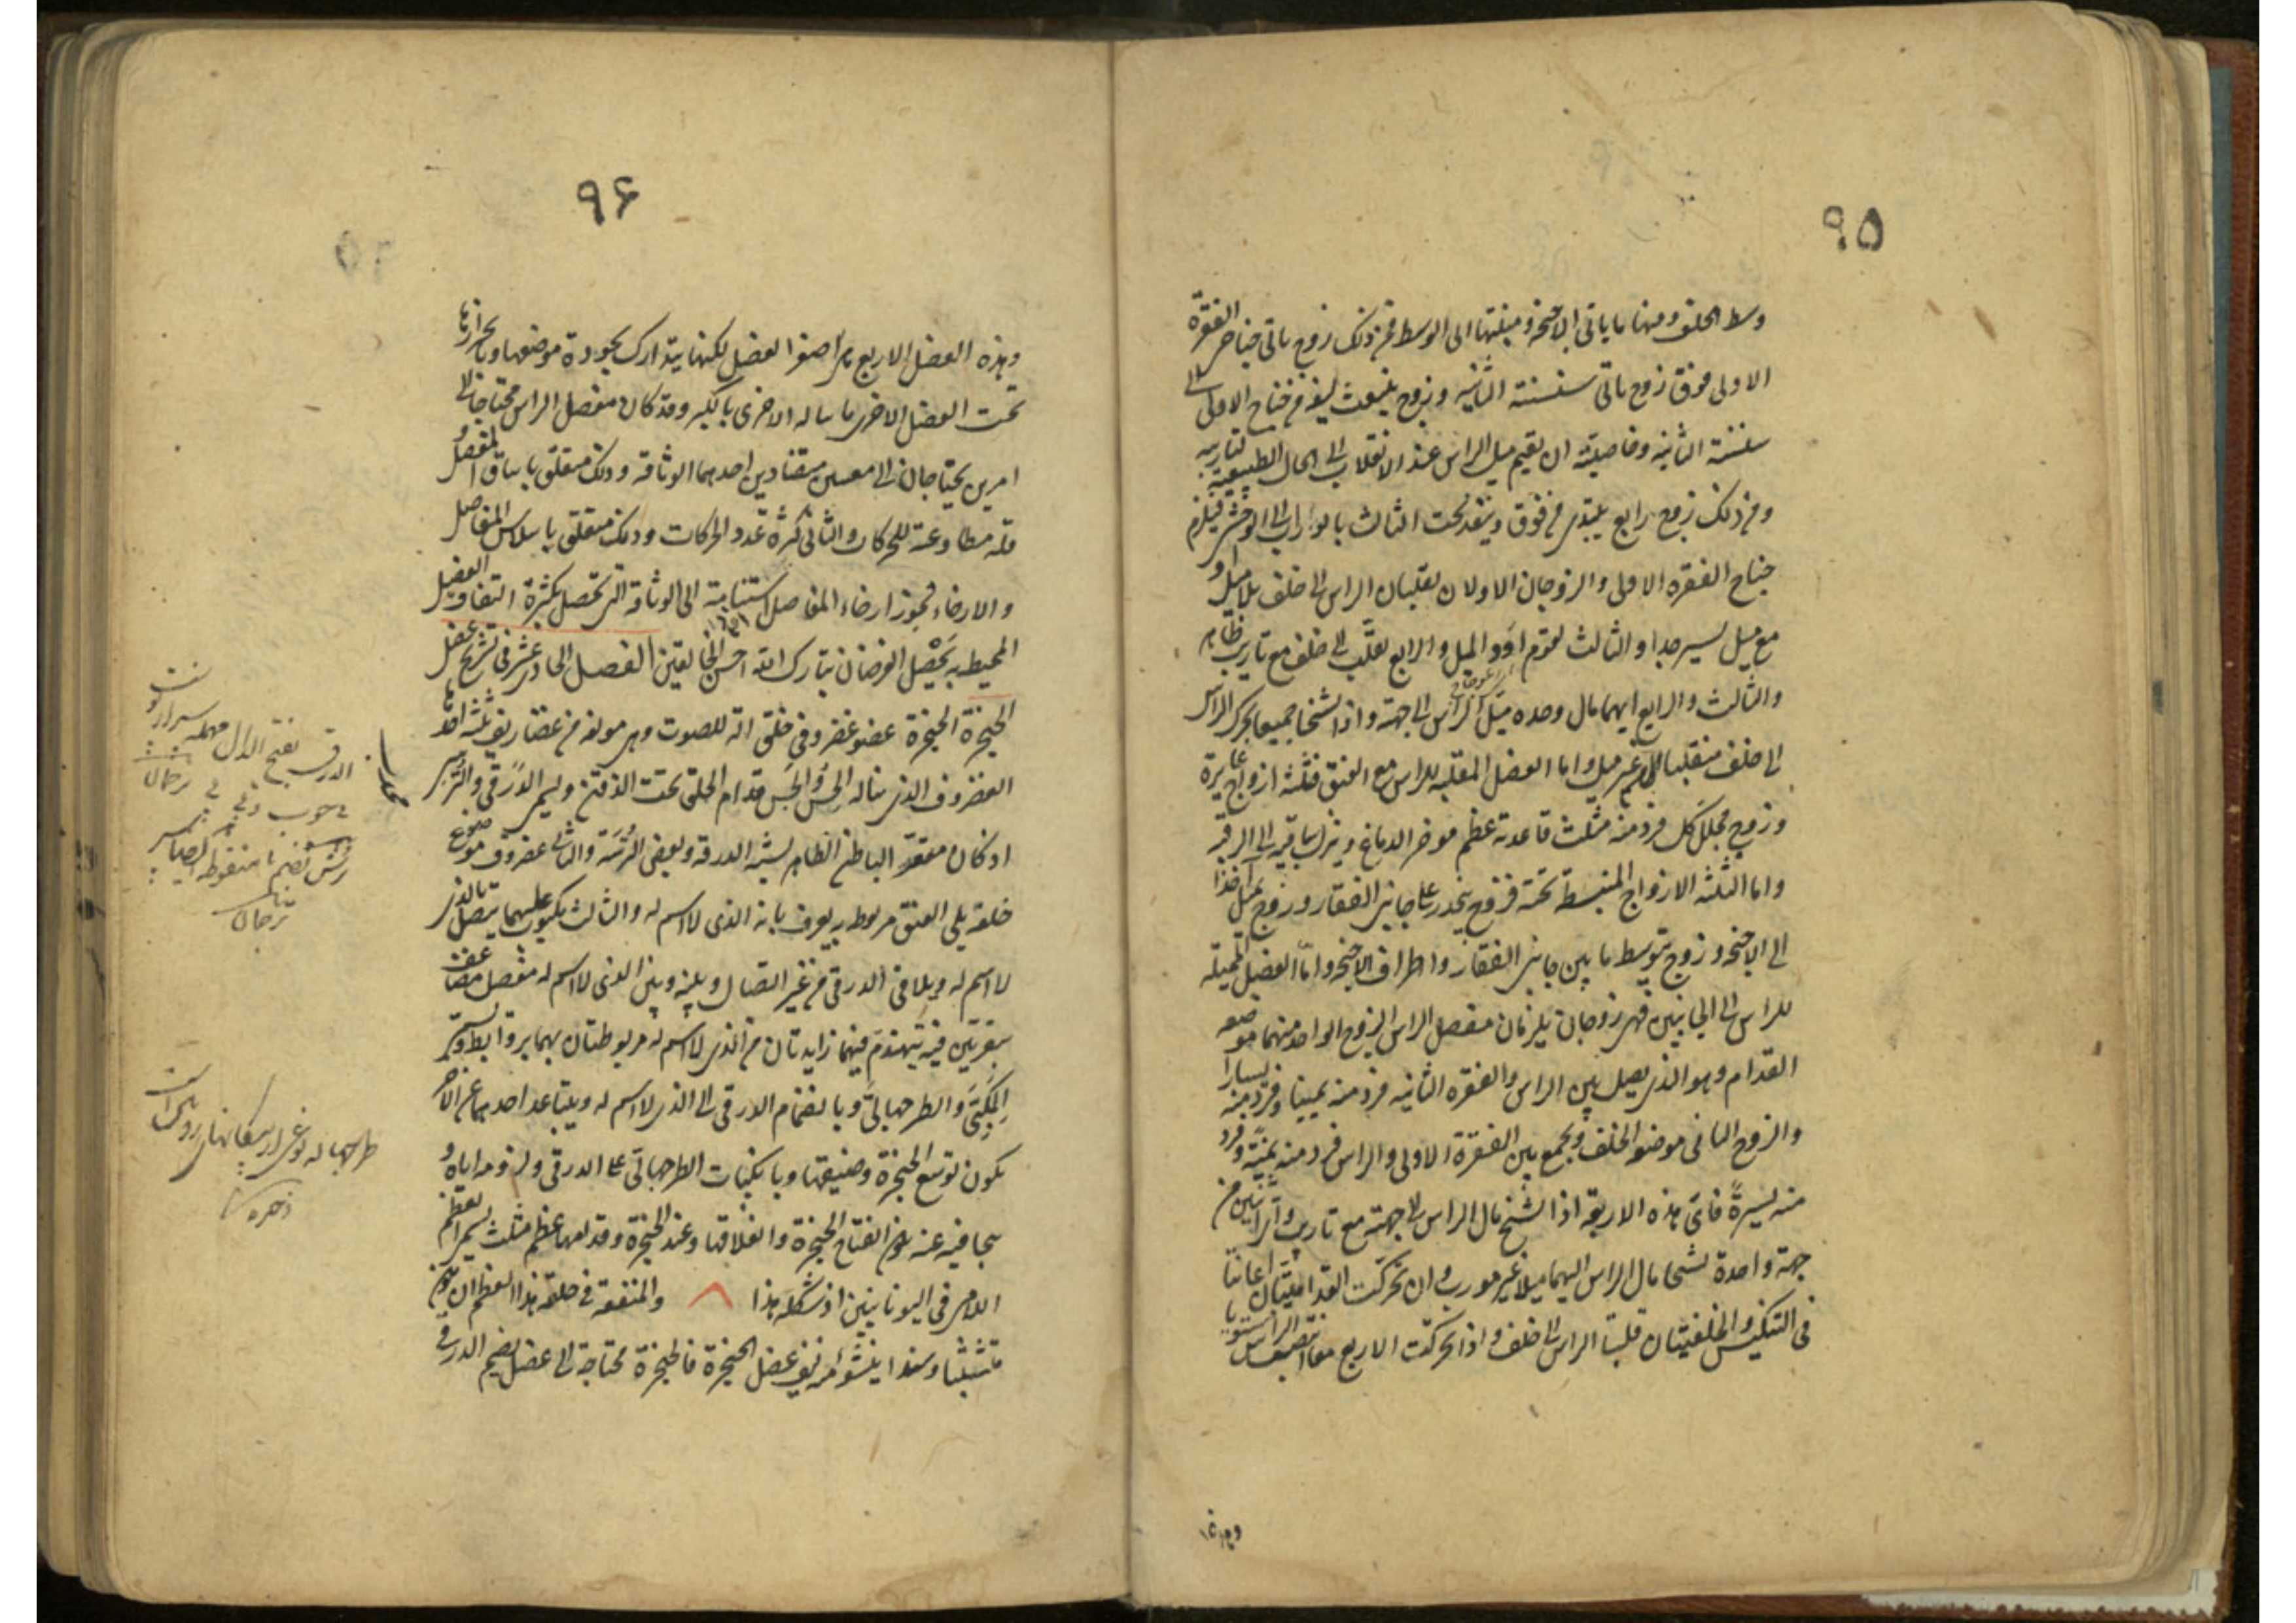 ٩٥
وسط الخلف ومنها ما ياتى الاجنحة ومنبتها الى الوسط فمن ذلك زوج ياتى جناحى الفقرة
الاولى فوق زوج ياتى سنسنة الثانية وزوج ينبعث ليفه من جناح الاولى الى
سنسنة الثانيه وخاصيته ان يقيم ميل الراس عند الانقلاب الى الحال الطبيعية لتاريبه
ومن ذلك زوج رابع يبتدى من فوق وينفذ تحت الثالث بالوراب الى الوحشى فيلزم
جناح الفقره الاولى والزوجان الاولان يقلبان الراس الى خلف بلا ميل او
مع ميل يسير جدا والثالث يقوم اود الميل والرابع يقلب الى خلف مع تاريب ظاهر
والثالث والرابع ايهما مال وحده ميل الراس الى جهة واذا تشنجا جميعا تحرك الراس
الى خلف منقلبا من غير ميل واما العضل المقلبه للراس مع العنق فثلثة ازواج غايرة
وزوج مجلل كل فرد منه مثلث قاعدته عظم موخر الدماغ وينزل باقيه الى الرقبة
واما الثلثه الازواج المنبسطة تحته فزوج ينحدر على جانبى الفقار وزوج يميل اخذا
الى الاجنحه وزوج يتوسط ما بين جانبى الفقار واطراف الاجنحه واما العضل المميلة
للراس الى الجانبين فهى زوجان يلزمان مفصل الراس الزوج الواحد منهما موضعه
القدام وهو الذى يصل بين الراس والفقره الثانيه فرد منه يمينا وفرد منه يسارا
والزوج الثانى موضعه الخلف ويجمع بين الفقرة الاولى والراس فرد منه يمنة وفرد
منه يسرة فاى هذه الاربعة اذا تشنج مال الراس الى جهته مع تاريب واى اثنين من
جهة واحدة تشنجا مال الراس اليهما ميلا غير مورب وان تحركت القداميتان اعانتا
فى التنكيس والخلفيتان قلبتا الراس الى خلف واذا تحركت الاربع معا انتصب الراس مستويا
وهذه
٩٦
وهذه العضل الاربع هى اصغر العضل لكنها يتدارك بجودة موضعها وباحرازها
تحت العضل الاخرى ما ناله الاخرى بالكبر وقد كان مفصل الراس محتاجا الى
امرين يحتاجان الى معنيين متضادين احدهما الوثاقه وذلك متعلق بايثاق المفصل و
قله مطاوعته للحركات والثانى كثرة عدد الحركات وذلك متعلق باسلاس المفاصل
والارخاء فجوز ارخاء المفاصل استنابة الى الوثاقة التى تحصل بكثرة التفاف العضل
المحيط به يحصل الغرضان تبارك الله احسن الخالقين الفصل الحادى عشر فى تشريح عضل
الحنجرة الحنجرة عضو غضروفى خلق الة للصوت وهى مولفه من غضاريف ثلثة احدها
الغضروف الذى يناله الحس والجس قدام الحلق تحت الذقن ويسمى الدرقى والترسى
اذ كان مقعر الباطن الظاهر يشبه الدرقه وبعض الترسة والثانى غضروف موضوع
خلفه يلى العنق مربوط به يعرف بانه الذى لا اسم له والثالث مكبوب عليهما يتصل بالذى
لا اسم له ويلاقى الدرقى من غير اتصال وبينه وبين الذى لا اسم له مفصل مضاعف
بنقرتين فيه يتهندم فيهما زايدتان من الذى لا اسم له مربوطتان بهما بروابط ويسمى
المكبى والطرجهالى وبانضمام الدرقى الى الذى لا اسم له وبتباعد احدهما عن الاخر
يكون توسع الحنجرة وضيقها وبانكباب الطرجهالى على الدرقى ولزومه اياه و
بتجافيه عنه يكون انفتاح الحنجرة وانغلاقها وعند الحنجرة وقدامها عظم مثلث يسمى العظم
اللامى فى اليونانيين اذ شكله هذا ٨ والمنفعة فى خلقة هذا العظم ان يكون
متشبثا وسندا ينشؤ منه ليف عضل الحنجرة فالحنجرة محتاجة الى عضل يضم الدرقى
الدرق بفتح الدال مهمله